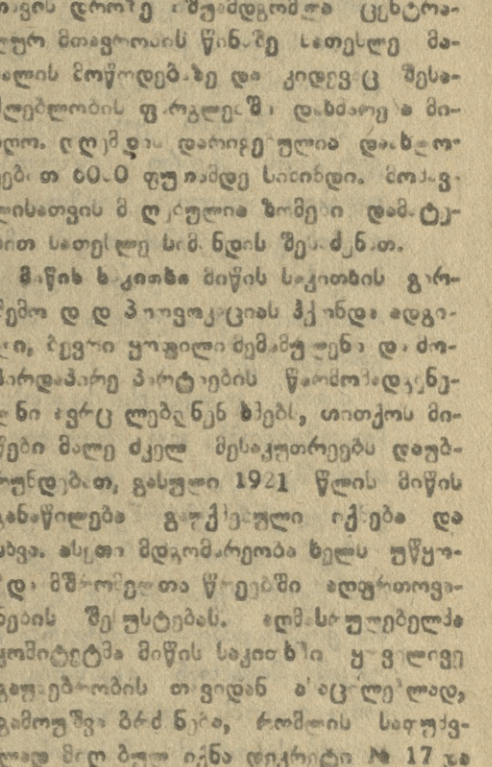 დრომე შუამდგომლა ცენტრა-
მთავრობის წინაშე სათესლე მა-
მოწოდებაზე და კიდევაც შესა-
ფარგლებში დახმარება მი-
დღემდის დარიგებულია დაახლო-
60.0 ფუთამდე სიმინდი. მოსავ-
მიღებულია ზომები დამატე-
სათესლე სიმინდის შესაძენათ.
მიწის საკითხი მიწის საკითხის გარ-
დიდ პროვოკაციას ჰქონდა ადგი-
ბევრი ყოფილი მემამულენი და მო-
პარტიების წარმომადგენე-
ავრცელებდნენ ხმებს, თითქოს მი-
მალე ძველ მესაკუთრეებს დაუბ-
გასული 1921 წლის მიწის
განაწილება გაუქმებული იქნება და
სხვა. ასეთი მდგომარეობა ხელს უწყო-
და მშრომელთა წრეებში აღფრთოვა-
ნების შესუსტებას. აღმასრულებელმა
კომიტეტმა მიწის საკითხში ყოველივე
თავიდან ასაცილებლად,
გამოუშვა ბრძანება, რომლის საფუძვ-
ლად მიღებულ იქნა დეკრეტი № 17 და